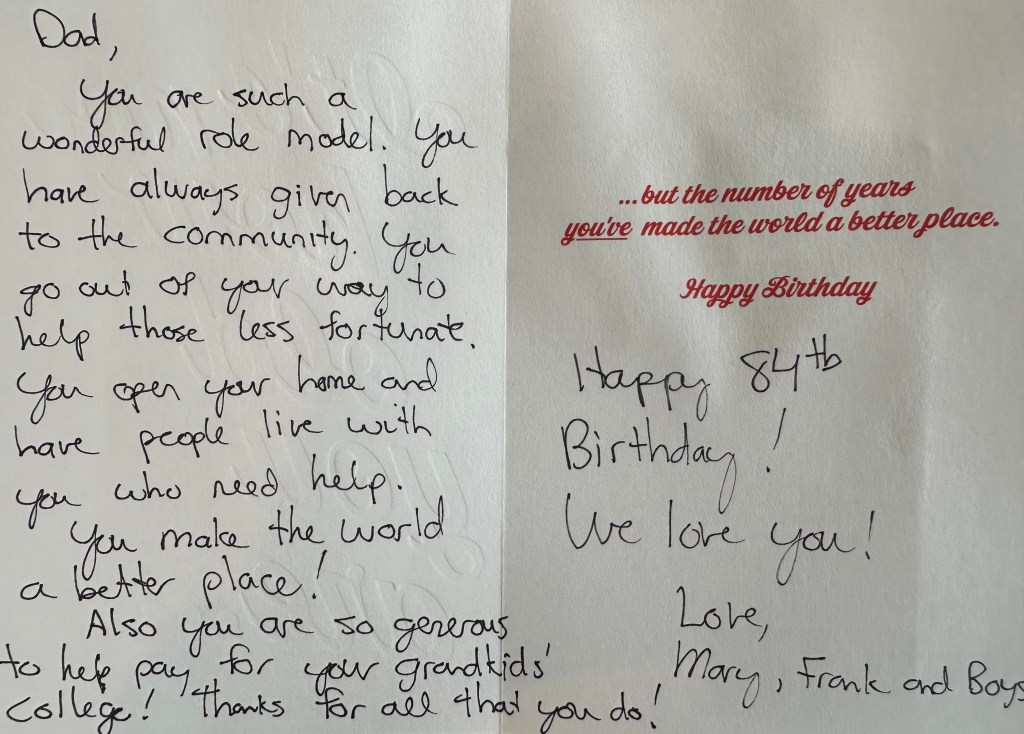 Dad,
You are such a
wonderful role model. You
have always given back
to the community. You
go out of your way to
help those less fortunate.
You open your home and
have people live with
you who need help.
You make the world
a better place!
Also you are so generous
to help pay for your grandkids'
College! Thanks for all that you do!
...but the number of years
you've made the world a better place.
Happy Birthday
Happy 84th
Birthday!
We love you!
Love,
Mary, Frank and Boys